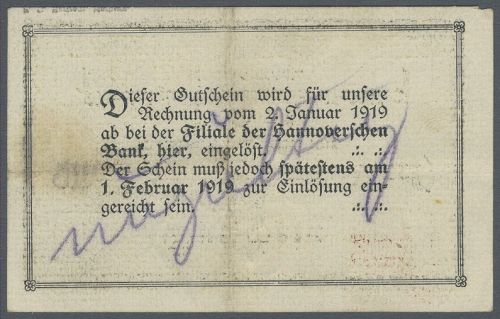 Dieser Gutschein wird für unsere
Rechnung vom 2. Januar 1919
ab bei der Filiale der Hannoverschen
Bank, hier, eingelöst. .:. .:.
Der Schein muß jedoch spätestens am
1. Februar 1919 zur Einlösung ein-
gereicht sein. .:. .:.
ungültig